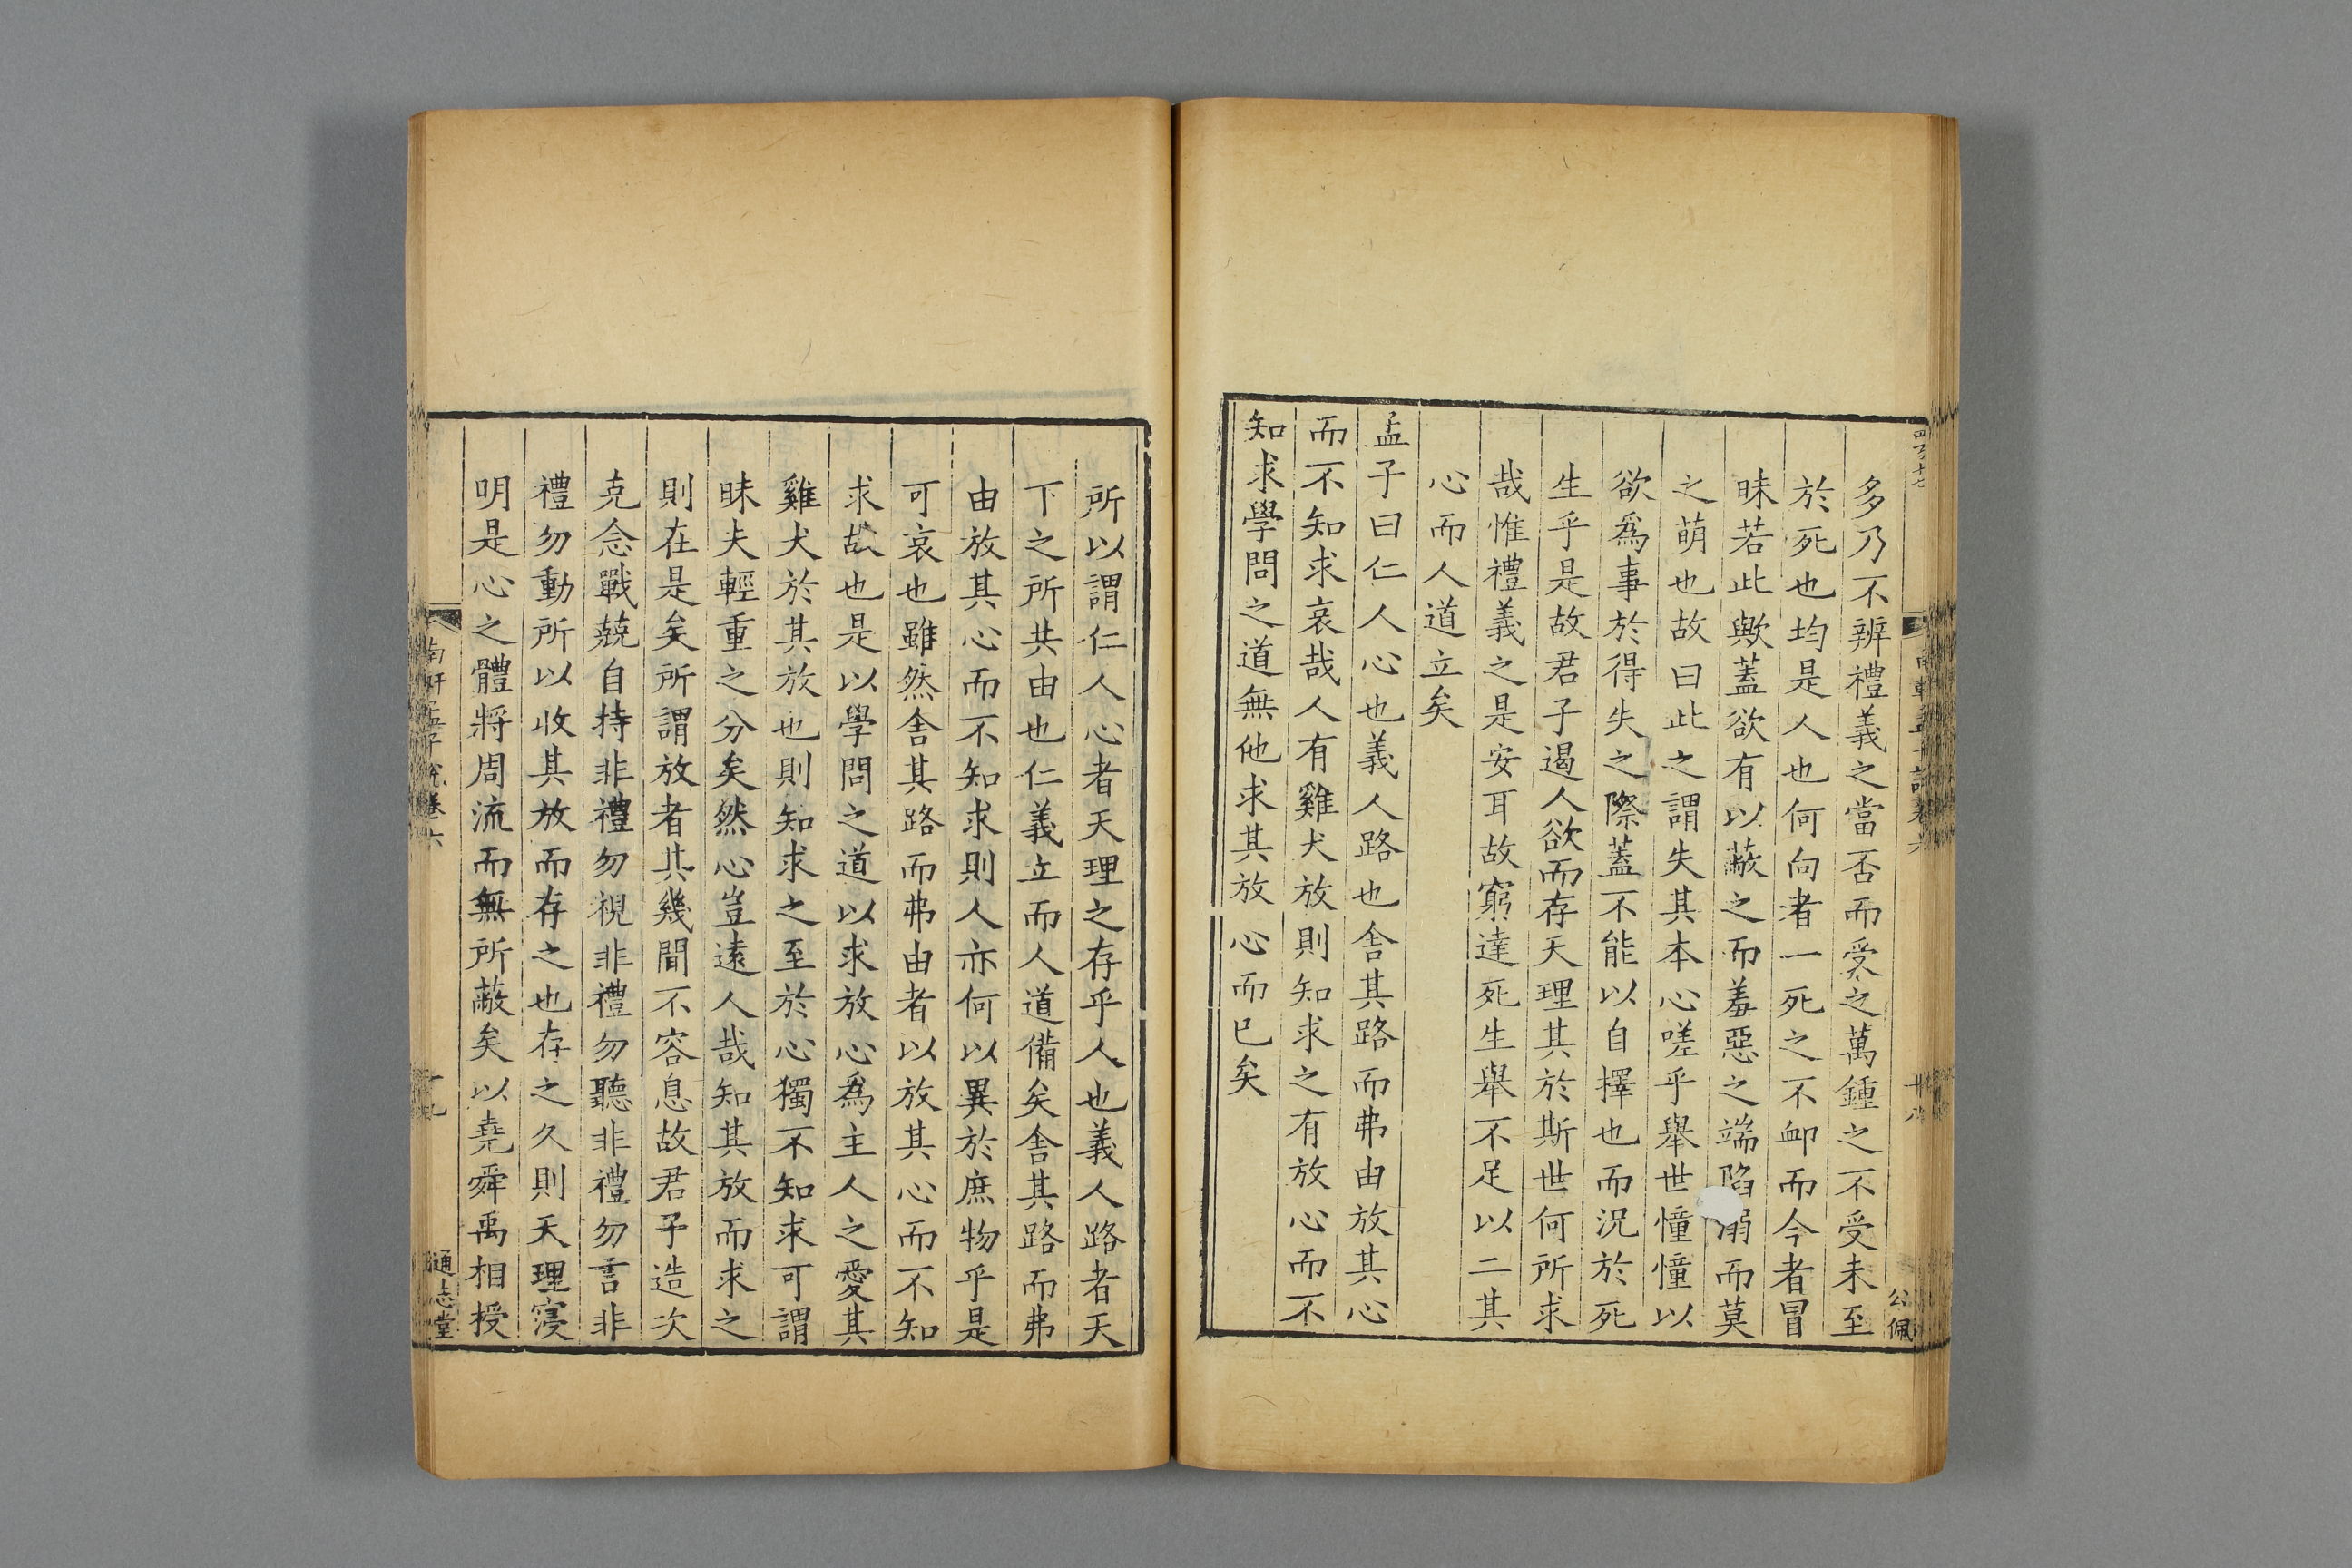 多乃不辨禮義之當否而受之萬鍾之不受未至
於死也均是人也何向者一死之不卹而今者冒
昧若此歟蓋欲有以蔽之而羞惡之端陷溺而莫
之萌也故曰此之謂失其本心嗟乎舉世憧憧以
欲爲事於得失之際蓋不能以自擇也而況於死
生乎是故君子遏人欲而存天理其於斯世何所求
哉惟禮義之是安耳故窮達死生舉不足以二其
心而人道立矣
孟子曰仁人心也義人路也舍其路而弗由放其心
而不知求哀哉人有雞犬放則知求之有放心而不
知求學問之道無他求其放心而已矣
公佩
所以謂仁人心者天理之存乎人也義人路者天
下之所共由也仁義立而人道備矣舍其路而弗
由放其心而不知求則人亦何以異於庶物乎是
可哀也雖然舍其路而弗由者以放其心而不知
求故也是以學問之道以求放心爲主人之愛其
雞犬於其放也則知求之至於心獨不知求可謂
昧夫輕重之分矣然心豈遠人哉知其放而求之
則在是矣所謂放者其幾間不容息故君子造次
克念戰兢自持非禮勿視非禮勿聽非禮勿言非
禮勿動所以收其放而存之也存之久則天理寖
明是心之體將周流而無所蔽矣以堯舜禹相授
南軒孟子說卷六
十九
通志堂